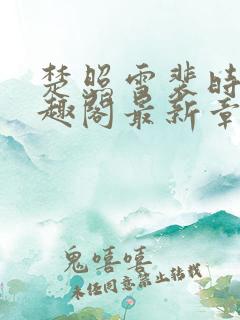 楚照雪裴时
趣阁最新章
鬼嘻嘻
未经同意禁止转载